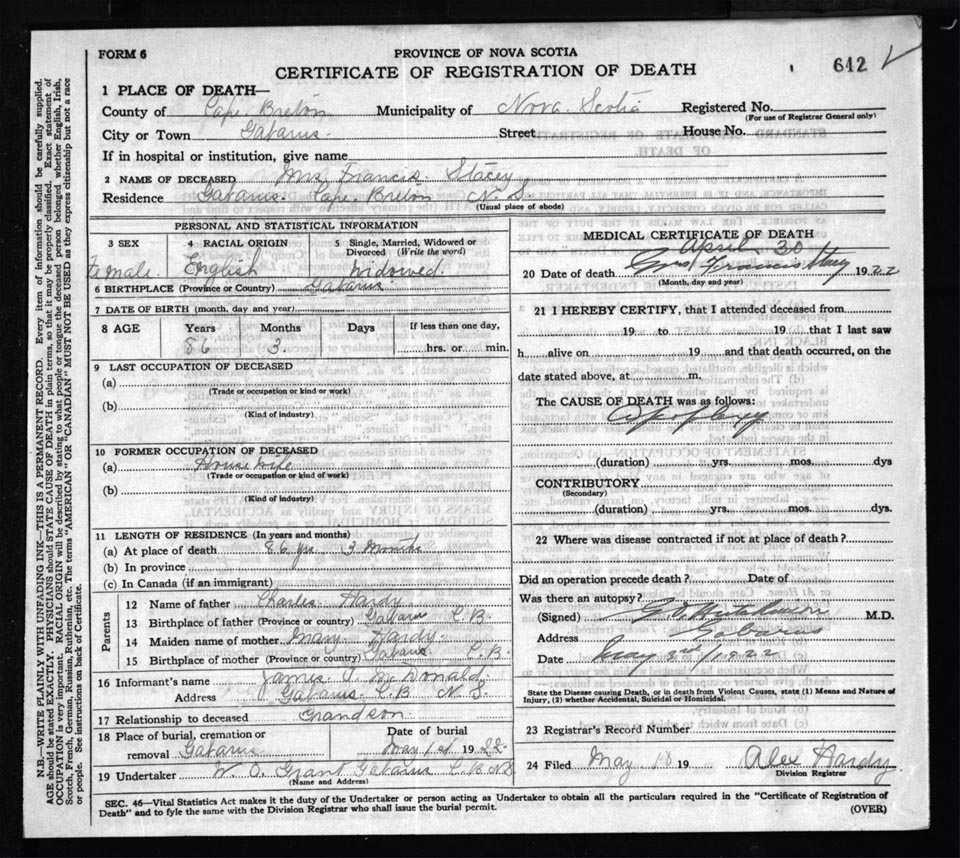 FORM 6
PROVINCE OF NOVA SCOTIA
CERTIFICATE OF REGISTRATION OF DEATH
642 √
1 PLACE OF DEATH—
County of Cape Breton Municipality of Nova Scotia Registered No.
(For use of Registrar General only)
City or Town Gabarus Street House No.
If in hospital or institution, give name
2 NAME OF DECEASED Mrs Francis Stacey
Residence Gabarus Cape Breton N. S.
(Usual place of abode)
PERSONAL AND STATISTICAL INFORMATION
3 SEX 4 RACIAL ORIGIN 5 Single, Married, Widowed or Divorced (Write the word)
Female. English widowed.
6 BIRTHPLACE (Province or Country) Gabarus
7 DATE OF BIRTH (month, day and year)
8 AGE Years Months Days If less than one day,
86 3 hrs. or min.
9 LAST OCCUPATION OF DECEASED
(a)
(Trade or occupation or kind or work)
(b)
(Kind of industry)
10 FORMER OCCUPATION OF DECEASED
(a) House wife
(Trade or occupation or kind of work)
(b)
(Kind of industry)
11 LENGTH OF RESIDENCE (In years and months)
(a) At place of death 86 yrs. 3 months
(b) In province
(c) In Canada (if an immigrant)
Parents
12 Name of father Charles Hardy
13 Birthplace of father (Province or country) Gabarus C. B.
14 Maiden name of mother Mary Hardy
15 Birthplace of mother (Province or country) Gabarus C. B.
16 Informant's name James McDonald
Address Gabarus C. B N. S.
17 Relationship to deceased Grandson
18 Place of burial, cremation or removal Gabarus Date of burial May 1st 1922
19 Undertaker W. O. Grant Gabarus C. B N S
(Name and Address)
MEDICAL CERTIFICATE OF DEATH
April 30
20 Date of death Mrs Francis Stacy 1922
(Month, day and year)
21 I HEREBY CERTIFY, that I attended deceased from
19 to 19 that I last saw
h alive on 19 and that death occurred, on the
date stated above, at m.
The CAUSE OF DEATH was as follows:
Apoplexy
(duration) yrs. mos. dys
CONTRIBUTORY
(Secondary)
(duration) yrs. mos. dys.
22 Where was disease contracted if not at place of death?
Did an operation precede death? Date of
Was there an autopsy?
(Signed) Hutchinson M.D.
Address Gabarus
Date May 3rd 1922
State the Disease causing Death, or in death from Violent Causes, state (1) Means and Nature of Injury, (2) whether Accidental, Suicidal or Homicidal.
23 Registrar's Record Number
24 Filed May 10 19 Alex Hardy
Division Registrar
SEC. 46—Vital Statistics Act makes it the duty of the Undertaker or person acting as Undertaker to obtain all the particulars required in the "Certificate of Registration of
Death" and to fyle the same with the Division Registrar who shall issue the burial permit.
(OVER)
N.B.—WRITE PLAINLY WITH UNFADING INK—THIS IS A PERMANENT RECORD. Every item of information should be carefully supplied.
AGE should be stated EXACTLY. PHYSICIANS should STATE CAUSE OF DEATH in plain terms, so that it may be properly classified. Exact statement of
OCCUPATION is very important. RACIAL ORIGIN will be described by stating to what people or tongue the deceased person belonged, whether English, Irish,
Scotch, French, German, Russian, Ruthenian, etc. The terms "AMERICAN" OR "CANADIAN" MUST NOT BE USED as they express citizenship but not a race
or people. See instructions on back of Certificate.